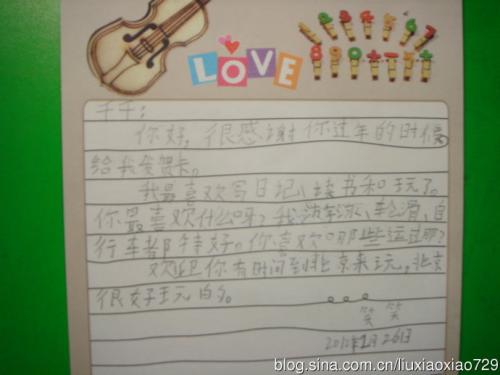 LOVE
千千：
你好，很感谢你过年的时候
给我发贺卡。
我最喜欢写日记、读书和玩了。
你最喜欢什么呀？我、轮滑、自
行车都特好。你喜欢哪些运动？
欢迎你有时间到北京来玩，北京
很好玩的。
笑笑
2010年1月26日
blog.sina.com.cn/liuxiaoxiao729